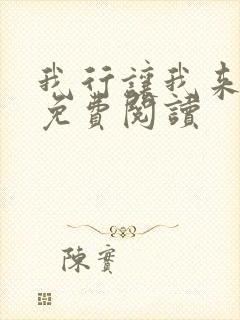 我行讓我来
免費閱讀
陳實